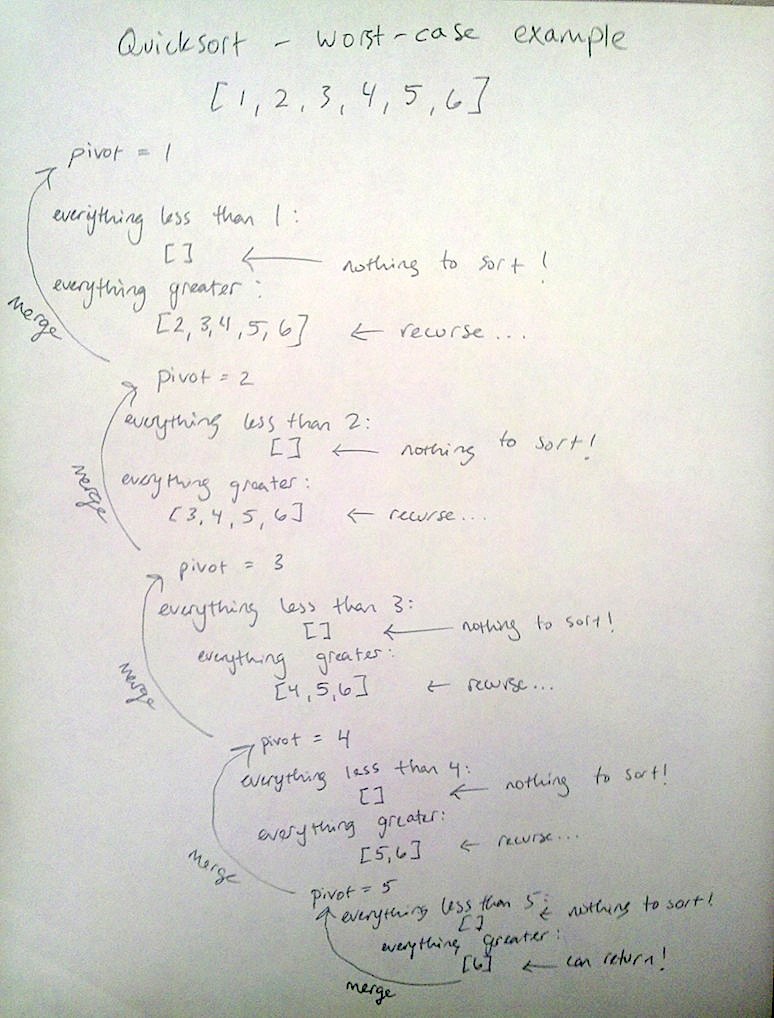 Quicksort - worst-case example
[1, 2, 3, 4, 5, 6]
pivot = 1
everything less than 1:
[] ← nothing to sort!
everything greater:
[2, 3, 4, 5, 6] ← recurse...
merge
pivot = 2
everything less than 2:
[] ← nothing to sort!
everything greater:
[3, 4, 5, 6] ← recurse...
merge
pivot = 3
everything less than 3:
[] ← nothing to sort!
everything greater:
[4, 5, 6] ← recurse...
merge
pivot = 4
everything less than 4:
[] ← nothing to sort!
everything greater:
[5, 6] ← recurse...
merge
pivot = 5
everything less than 5:
[] ← nothing to sort!
everything greater:
[6] ← can return!
merge